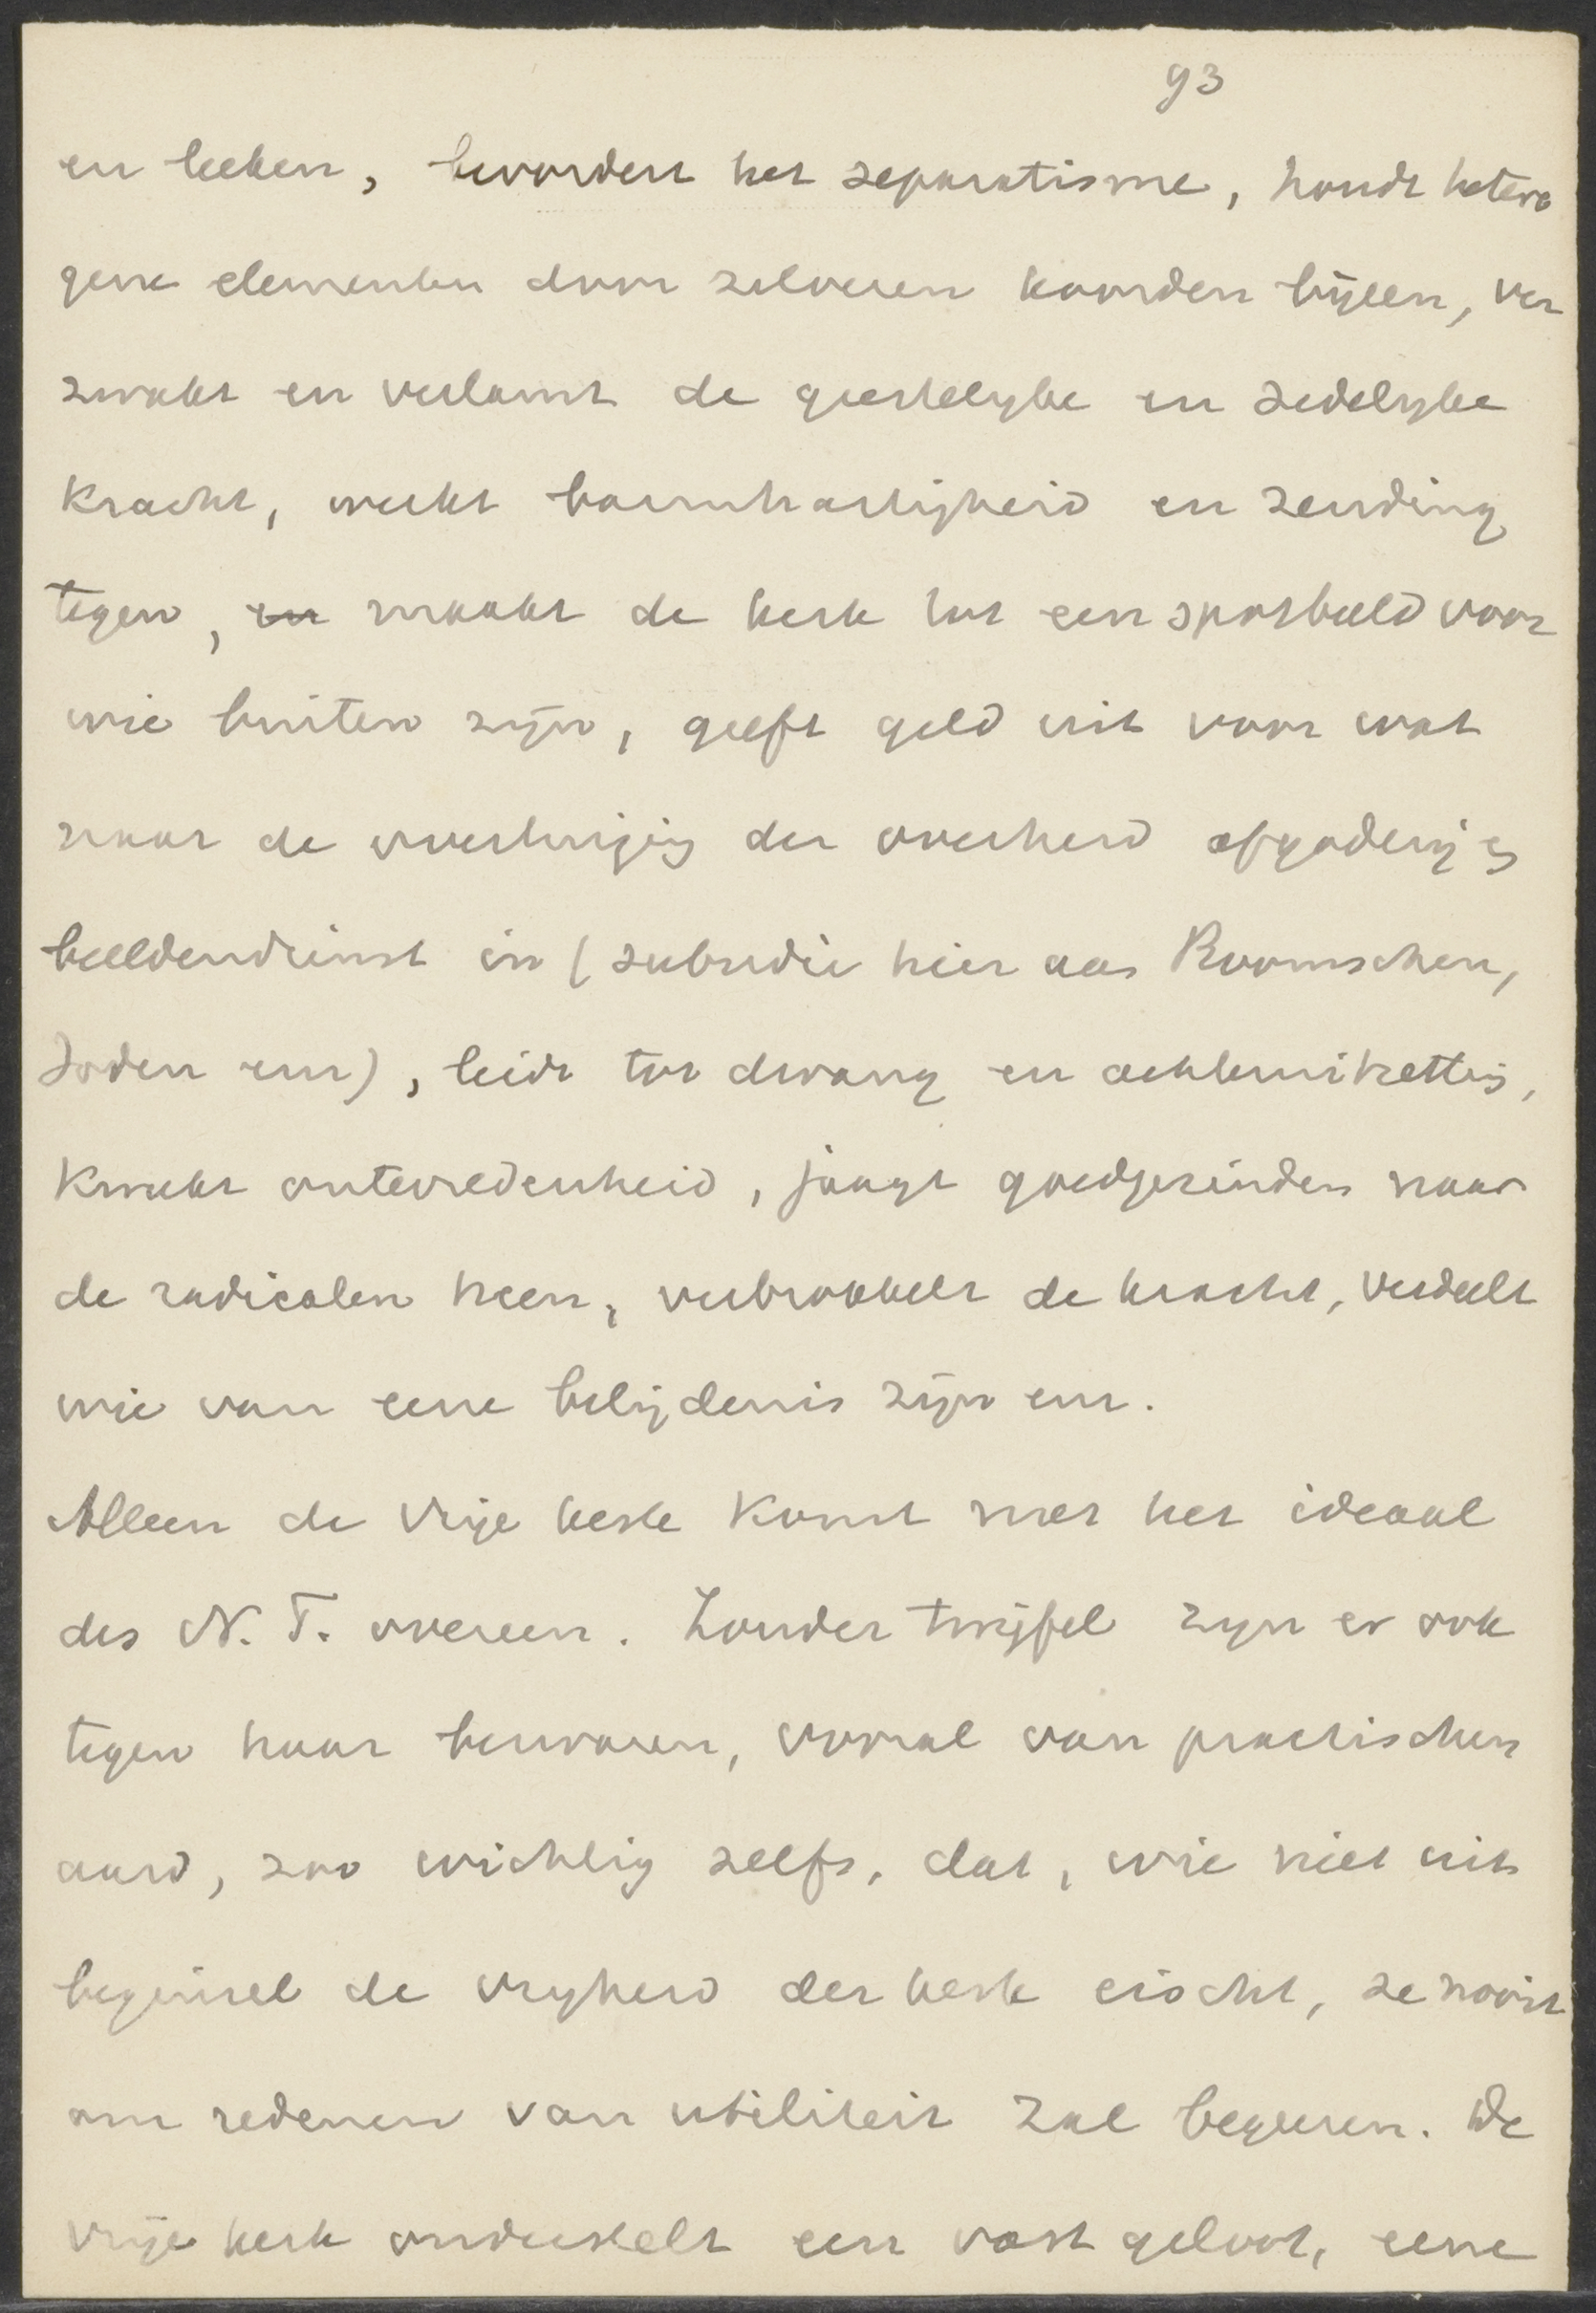 93
en leeken, bevordert het separatisme, houdt hetero
gene elementen door zilveren koorden bijeen, ver
zwakt en verlamt de geestelijke en zedelijke
kracht, werkt barmhartigheid en zending
tegen, en maakt de kerk tot een spotbeeld voor
wie buiten zijn, geeft geld uit voor wat
naar de overtuiging der overheid afgoderij en
beeldendienst is (subsidie hier aan Roomschen,
Joden enz), leidt tot dwang en achteruitzetting,
kweekt ontevredenheid, jaagt goedgezinden naar
de radicalen heen, verbrokkelt de kracht, verdeelt
wie van eene belijdenis zijn enz.
Alleen de vrije kerk komt met het ideaal
des N. T. overeen. Zonder twijfel zijn er ook
tegen haar bezwaren, vooral van practischen
aard, zoo wichtig zelfs, dat, wie niet uit
beginsel de vrijheid der kerk eischt, ze nooit
om redenen van utiliteit zal begeeren. De
vrije kerk onderstelt een vast geloof, eene